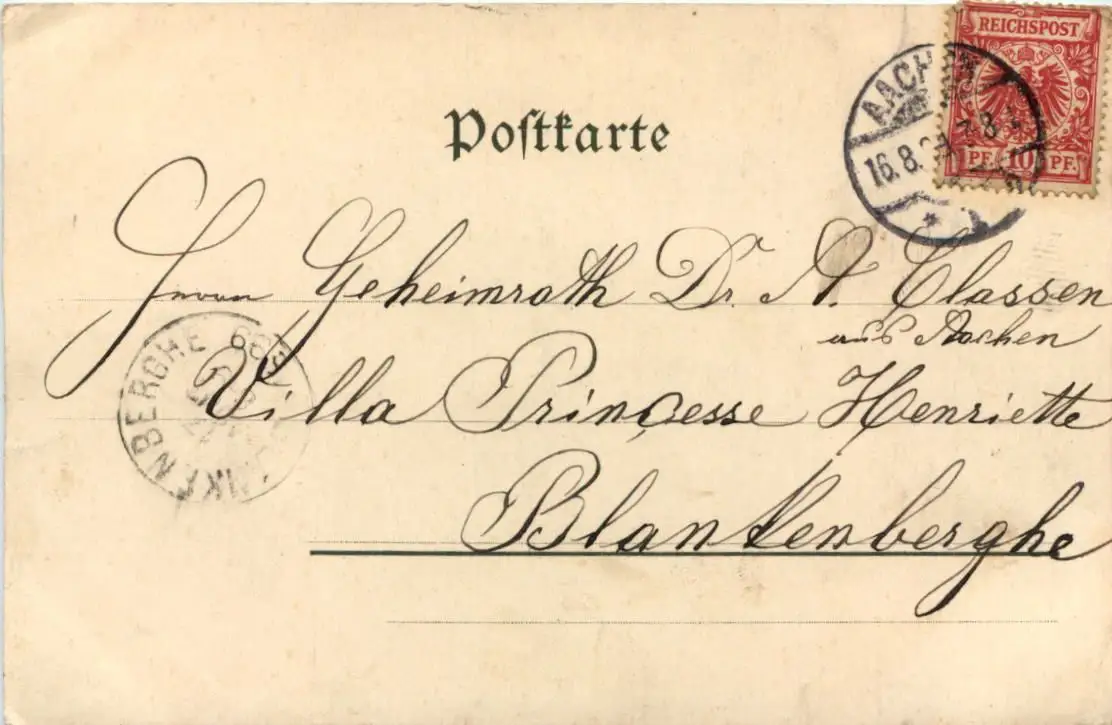 REICHSPOST
PF. 10 PF.
AACHEN
16.8.
Postkarte
Herrn Geheimrath Dr. A. Classen
aus Aachen
Villa Princesse Henriette
Blankenberghe
BLANKENBERGHE